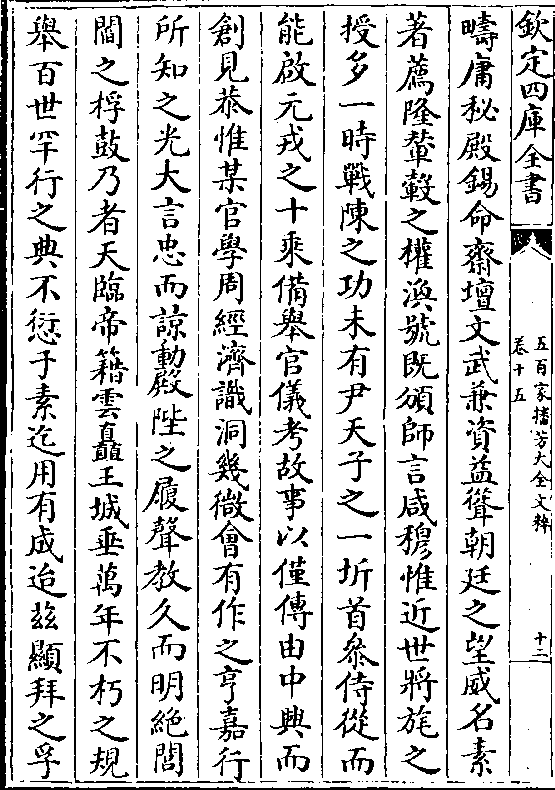 欽定四庫全書
五百家播芳大全文粹
卷十五
十二
疇庸秘殿錫命齋壇文武兼資益聳朝廷之望威名素
著薦隆輦轂之權渙號既頒師言咸穆惟近世將旄之
授多一時戰陳之功未有尹天子之一圻首叅侍從而
能啟元戎之十乘備舉官儀考故事以僅傳由中興而
創見恭惟某官學周經濟識洞幾微會有作之亨嘉行
所知之光大言忠而諒動殿陛之履聲教久而明絶閭
閻之桴鼓乃者天臨帝籍雲矗王城垂萬年不朽之規
舉百世罕行之典不愆于素迄用有成迨兹顯拜之孚